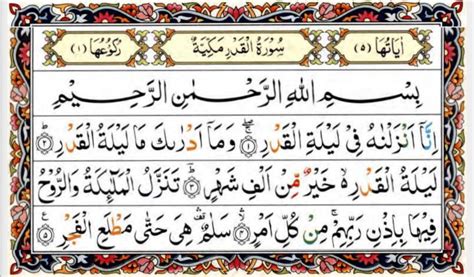 اٰیَاتُهَا (٥) سُوْرَةُ الْقَدْرِ مَكِّيَّةٌ رُكُوْعُهَا (١)
بِسْمِ اللهِ الرَّحْمٰنِ الرَّحِيْمِ
اِنَّاۤ اَنْزَلْنٰهُ فِیْ لَیْلَةِ الْقَدْرِ ۚۖ ﴿١﴾ وَمَاۤ اَدْرٰىكَ مَا لَیْلَةُ الْقَدْرِ ؕ ﴿٢﴾
لَیْلَةُ الْقَدْرِ ۙ۬ خَیْرٌ مِّنْ اَلْفِ شَهْرٍ ؕ ﴿٣﴾ تَنَزَّلُ الْمَلٰٓىِٕكَةُ وَالرُّوْحُ
فِیْهَا بِاِذْنِ رَبِّهِمْ ۚ مِنْ كُلِّ اَمْرٍ ۙۛ ﴿٤﴾ سَلٰمٌ ۛ۫ هِیَ حَتّٰی مَطْلَعِ الْفَجْرِ ﴿٥﴾